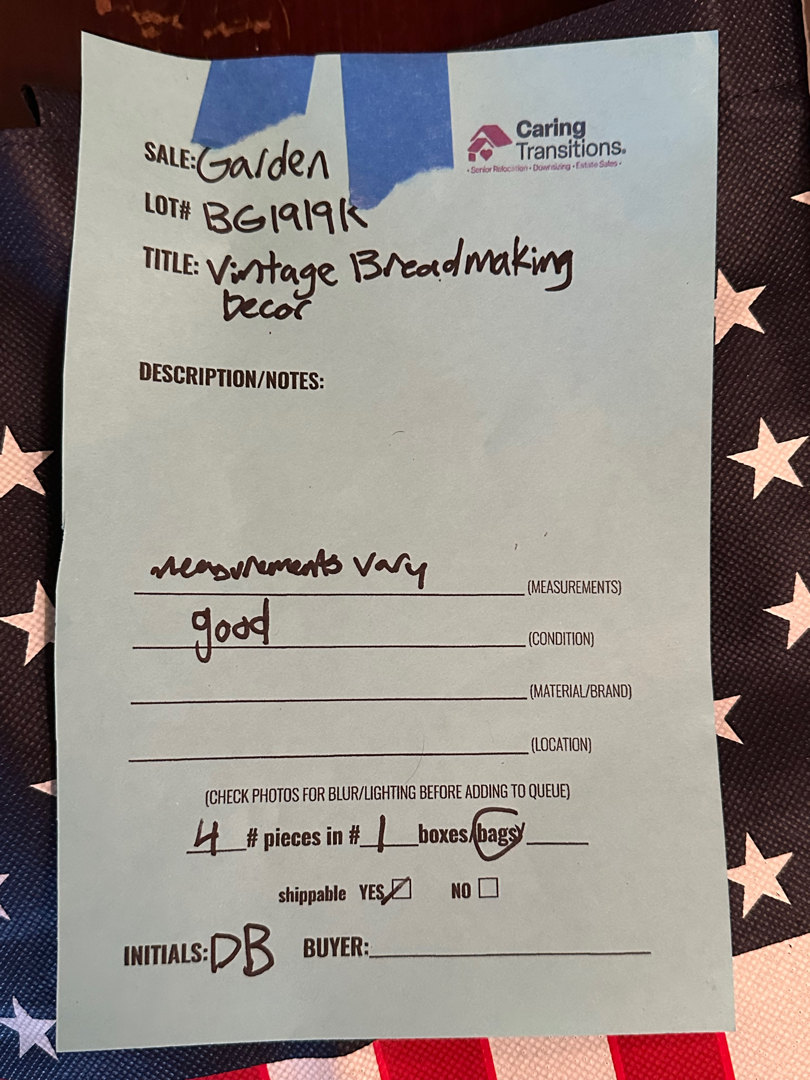 Caring
Transitions®
• Senior Relocation • Downsizing • Estate Sales •
SALE: Garden
LOT# BG1919K
TITLE: Vintage Breadmaking
Decor
DESCRIPTION/NOTES:
measurements vary (MEASUREMENTS)
good (CONDITION)
(MATERIAL/BRAND)
(LOCATION)
(CHECK PHOTOS FOR BLUR/LIGHTING BEFORE ADDING TO QUEUE)
4 # pieces in # 1 boxes/bags/
shippable YES NO
INITIALS: DB BUYER: